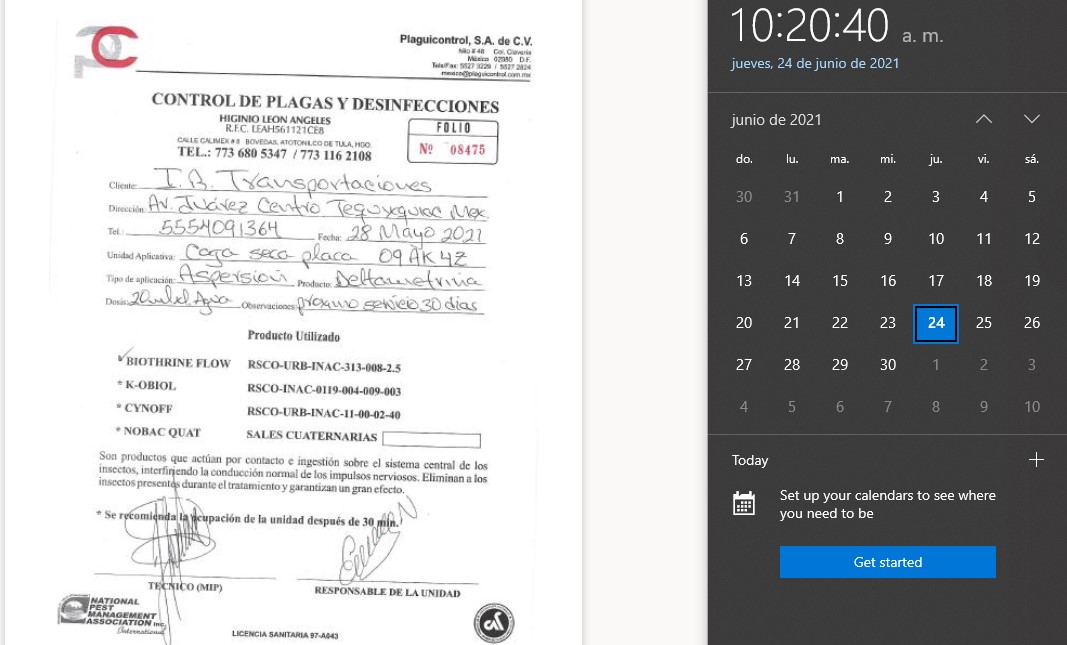 PC
Plaguicontrol, S.A. de C.V.
Nilo # 48 Col. Clavería
México 02080 D.F.
Tels/Fax: 5527 3229 / 5527 2824
mexico@plaguicontrol.com.mx
CONTROL DE PLAGAS Y DESINFECCIONES
HIGINIO LEON ANGELES
R.F.C. LEAH561121CE8
CALLE CALIMEX # 8 BOVEDAS, ATOTONILCO DE TULA, HGO.
TEL.: 773 680 5347 / 773 116 2108
FOLIO
Nº 08475
Cliente: I.B. Transportaciones
Dirección: Av. Juárez Centro Tequixquiac Mex.
Tel.: 5554091364 Fecha: 28 Mayo 2021
Unidad Aplicativa: Caja seca placa 09 AK 4Z
Tipo de aplicación: Aspersion Producto: Deltametrina
Dosis: 20ml x l Agua Observaciones: proximo servicio 30 dias
Producto Utilizado
BIOTHRINE FLOW RSCO-URB-INAC-313-008-2.5
* K-OBIOL RSCO-INAC-0119-004-009-003
* CYNOFF RSCO-URB-INAC-11-00-02-40
* NOBAC QUAT SALES CUATERNARIAS
Son productos que actúan por contacto e ingestión sobre el sistema central de los
insectos, interfiriendo la conducción normal de los impulsos nerviosos. Eliminan a los
insectos presentes durante el tratamiento y garantizan un gran efecto.
* Se recomienda la ocupación de la unidad después de 30 min.
TECNICO (MIP) RESPONSABLE DE LA UNIDAD
NATIONAL
PEST
MANAGEMENT
ASSOCIATION Inc.
International
LICENCIA SANITARIA 97-A043
10:20:40 a. m.
jueves, 24 de junio de 2021
junio de 2021
do. lu. ma. mi. ju. vi. sá.
30 31 1 2 3 4 5
6 7 8 9 10 11 12
13 14 15 16 17 18 19
20 21 22 23 24 25 26
27 28 29 30 1 2 3
4 5 6 7 8 9 10
Today
Set up your calendars to see where
you need to be
Get started